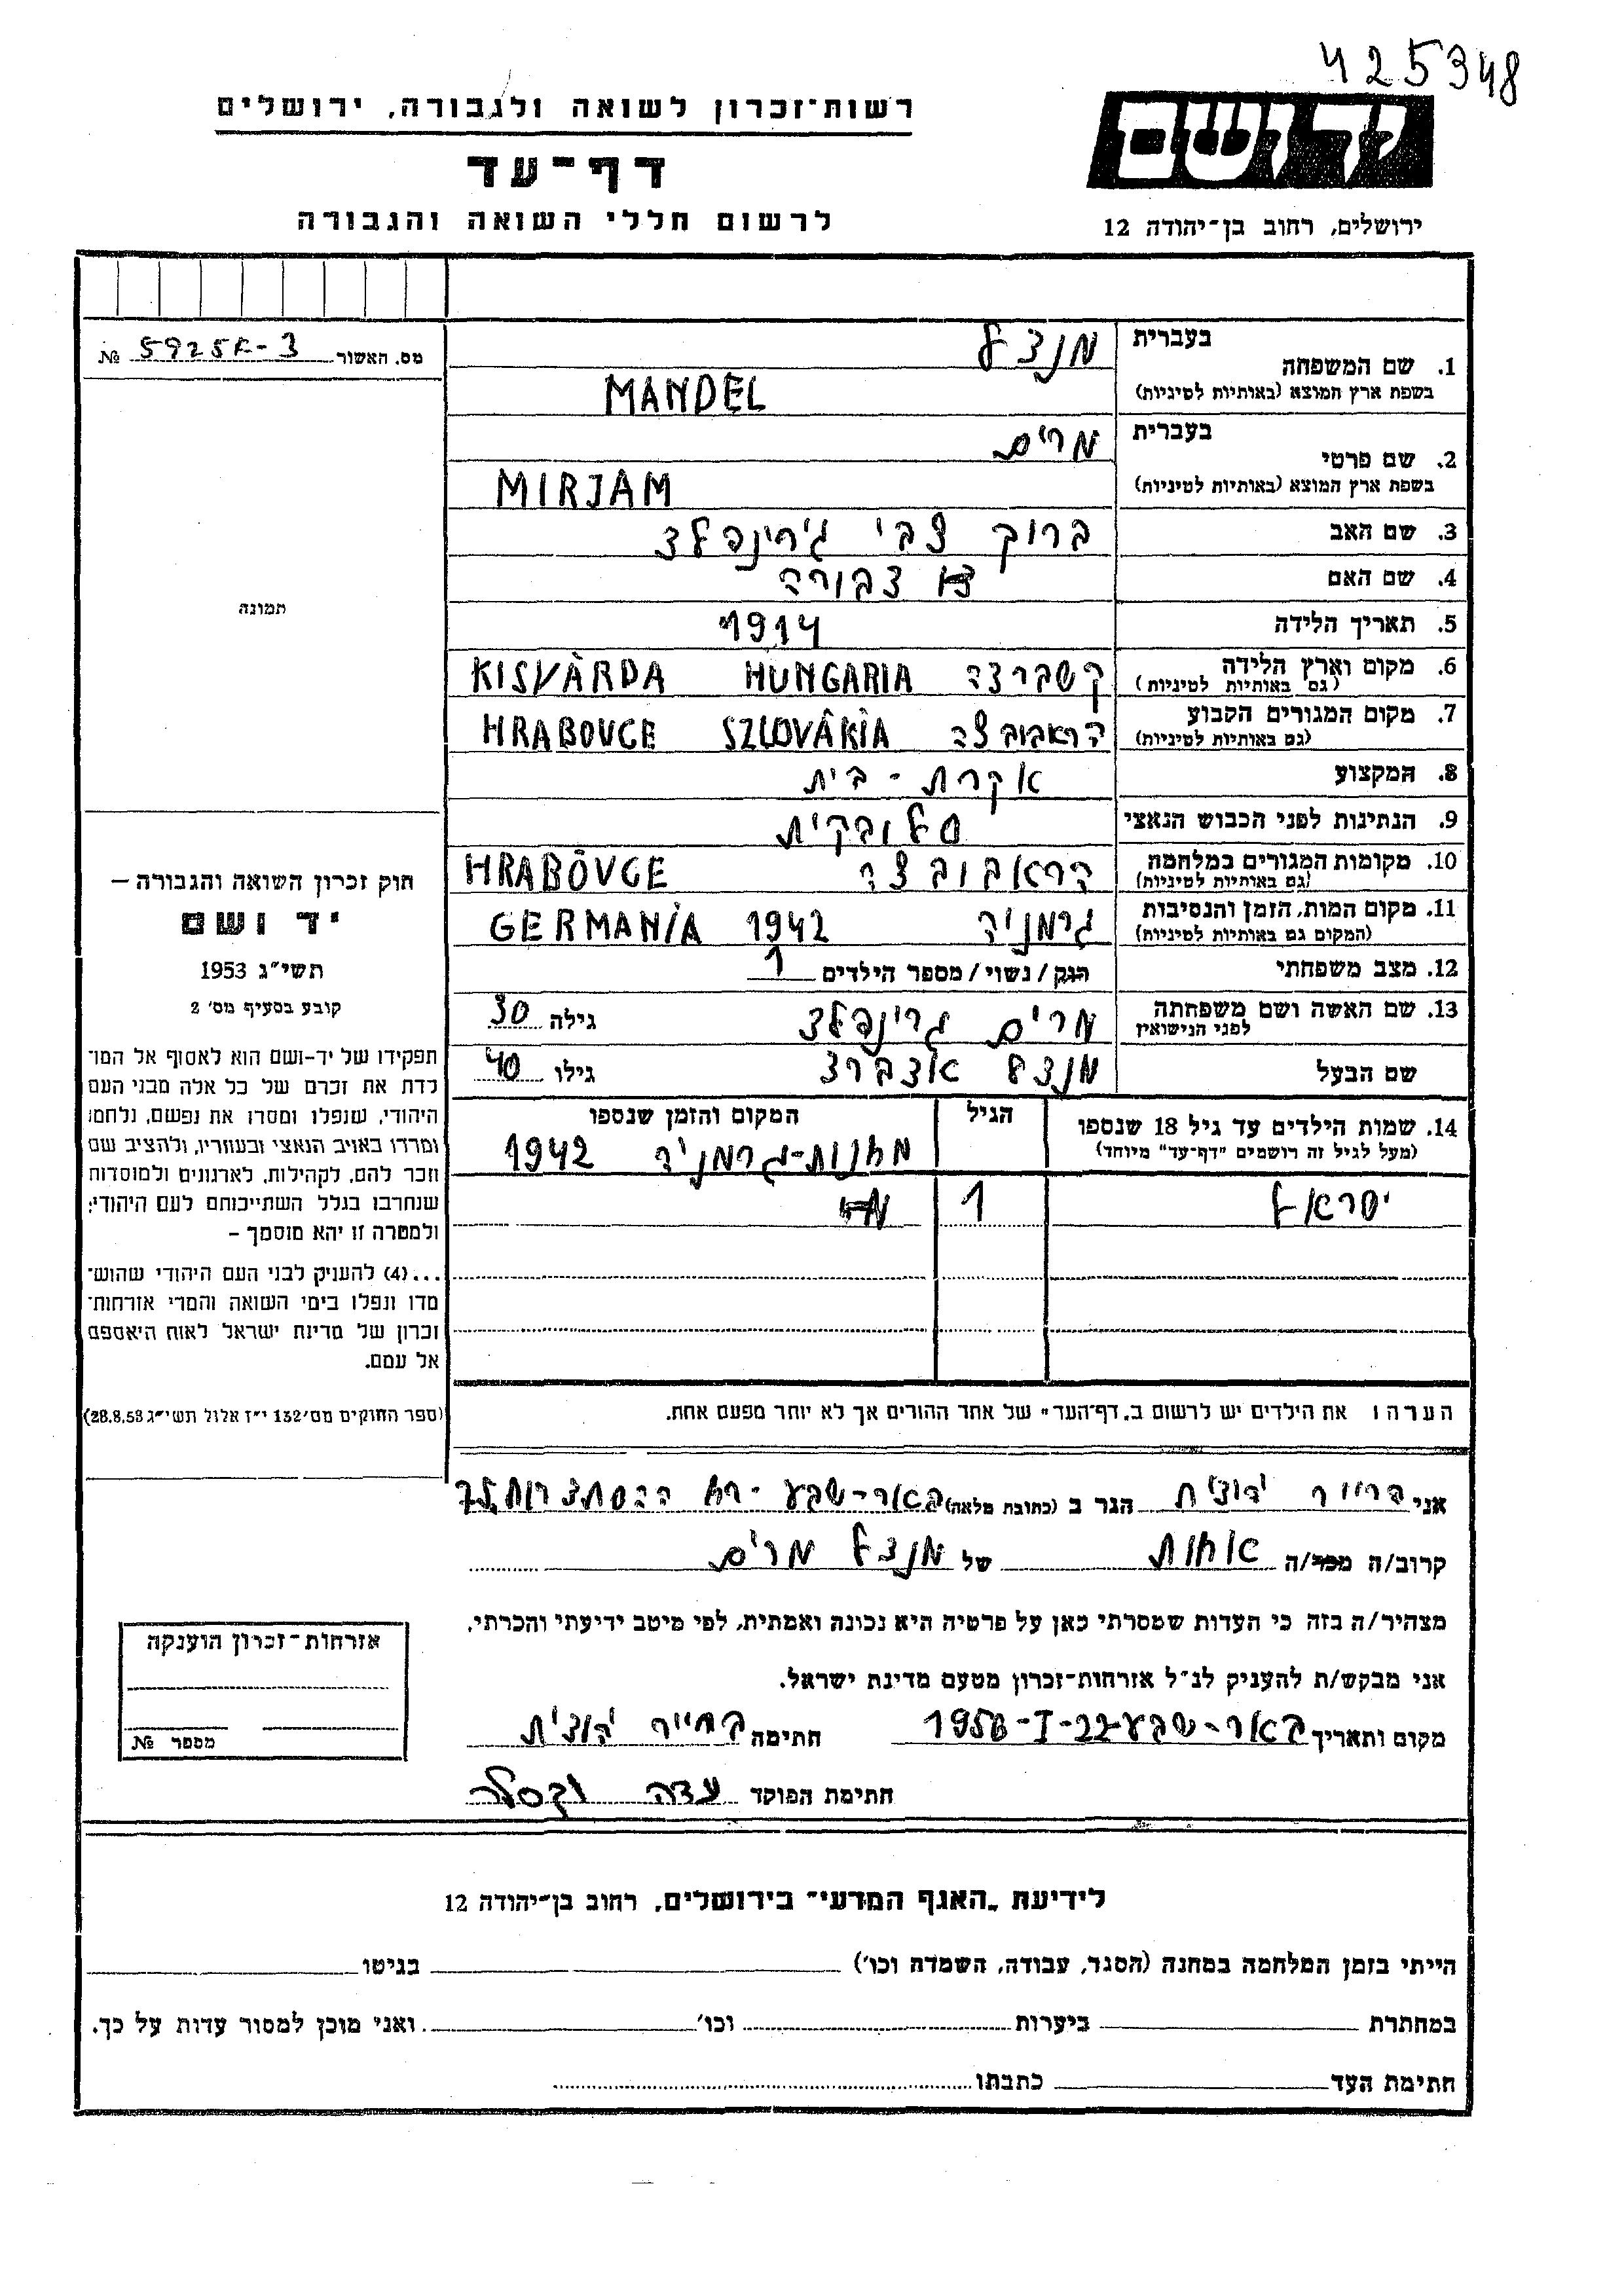 425348
יד ושם
ירושלים, רחוב בן־יהודה 12
רשות־זכרון לשואה ולגבורה, ירושלים
דף־עד
לרשום חללי השואה והגבורה
מס. האשור № 5925K-3
תמונה
1. שם המשפחה
בעברית מנדל
בשפת ארץ המוצא (באותיות לטיניות) MANDEL
2. שם פרטי
בעברית מרים
בשפת ארץ המוצא (באותיות לטיניות) MIRJAM
3. שם האב ברוך צבי גרינפלד
4. שם האם דבורה
5. תאריך הלידה 1914
6. מקום וארץ הלידה (גם באותיות לטיניות) קשברדה HUNGARIA KISVÀRDA
7. מקום המגורים הקבוע (גם באותיות לטיניות) הראבובצה SZLOVÂKÌA HRABOVCE
8. המקצוע אקרת - בית
9. הנתינות לפני הכבוש הנאצי סלובקית
10. מקומות המגורים במלחמה (גם באותיות לטיניות) הראבובצה HRABÒVCE
11. מקום המות, הזמן והנסיבות (המקום גם באותיות לטיניות) גרמניה 1942 GERMANÌA
12. מצב משפחתי רווק / נשוי / מספר הילדים 1
13. שם האשה ושם משפחתה לפני הנישואין מרים גרינפלד גילה 30
שם הבעל מנדל אדברד גילו 40
14. שמות הילדים עד גיל 18 שנספו (מעל לגיל זה רושמים "דף־עד" מיוחד) הגיל המקום והזמן שנספו
מחנות-גרמניה 1942
ישראל 1
הערה: את הילדים יש לרשום ב„דף־העד" של אחד ההורים אך לא יותר מפעם אחת.
חוק זכרון השואה והגבורה –
יד ושם
תשי״ג 1953
קובע בסעיף מס׳ 2
תפקידו של יד-ושם הוא לאסוף אל המו־
לדת את זכרם של כל אלה מבני העם
היהודי, שנפלו ומסרו את נפשם, נלחמו
ומרדו באויב הנאצי ובעוזריו, ולהציב שם
וזכר להם, לקהילות, לארגונים ולמוסדות
שנחרבו בגלל השתייכותם לעם היהודי;
ולמטרה זו יהא מוסמך –
...(4) להעניק לבני העם היהודי שהוש־
מדו ונפלו בימי השואה והמרי אזרחות־
זכרון של מדינת ישראל לאות היאספם
אל עמם.
(ספר החוקים מס׳ 132 י״ז אלול תשי״ג 28.8.53)
אני יהודית הגר ב (כתובת מלאה) באר-שבע
קרוב/ה מכר/ה אחות של מנדל מרים
מצהיר/ה בזה כי העדות שמסרתי כאן על פרטיה היא נכונה ואמתית, לפי מיטב ידיעתי והכרתי.
אני מבקש/ת להעניק לנ״ל אזרחות־זכרון מטעם מדינת ישראל.
מקום ותאריך באר-שבע 22-I-1956 חתימה יהודית
חתימת הפוקד עדה וקסלר
אזרחות־זכרון הוענקה
מספר №
לידיעת „האגף המדעי" בירושלים, רחוב בן־יהודה 12
הייתי בזמן המלחמה במחנה (הסגר, עבודה, השמדה וכו׳) בגיטו
במחתרת ביערות וכו׳ ואני מוכן למסור עדות על כך.
חתימת העד כתבתו